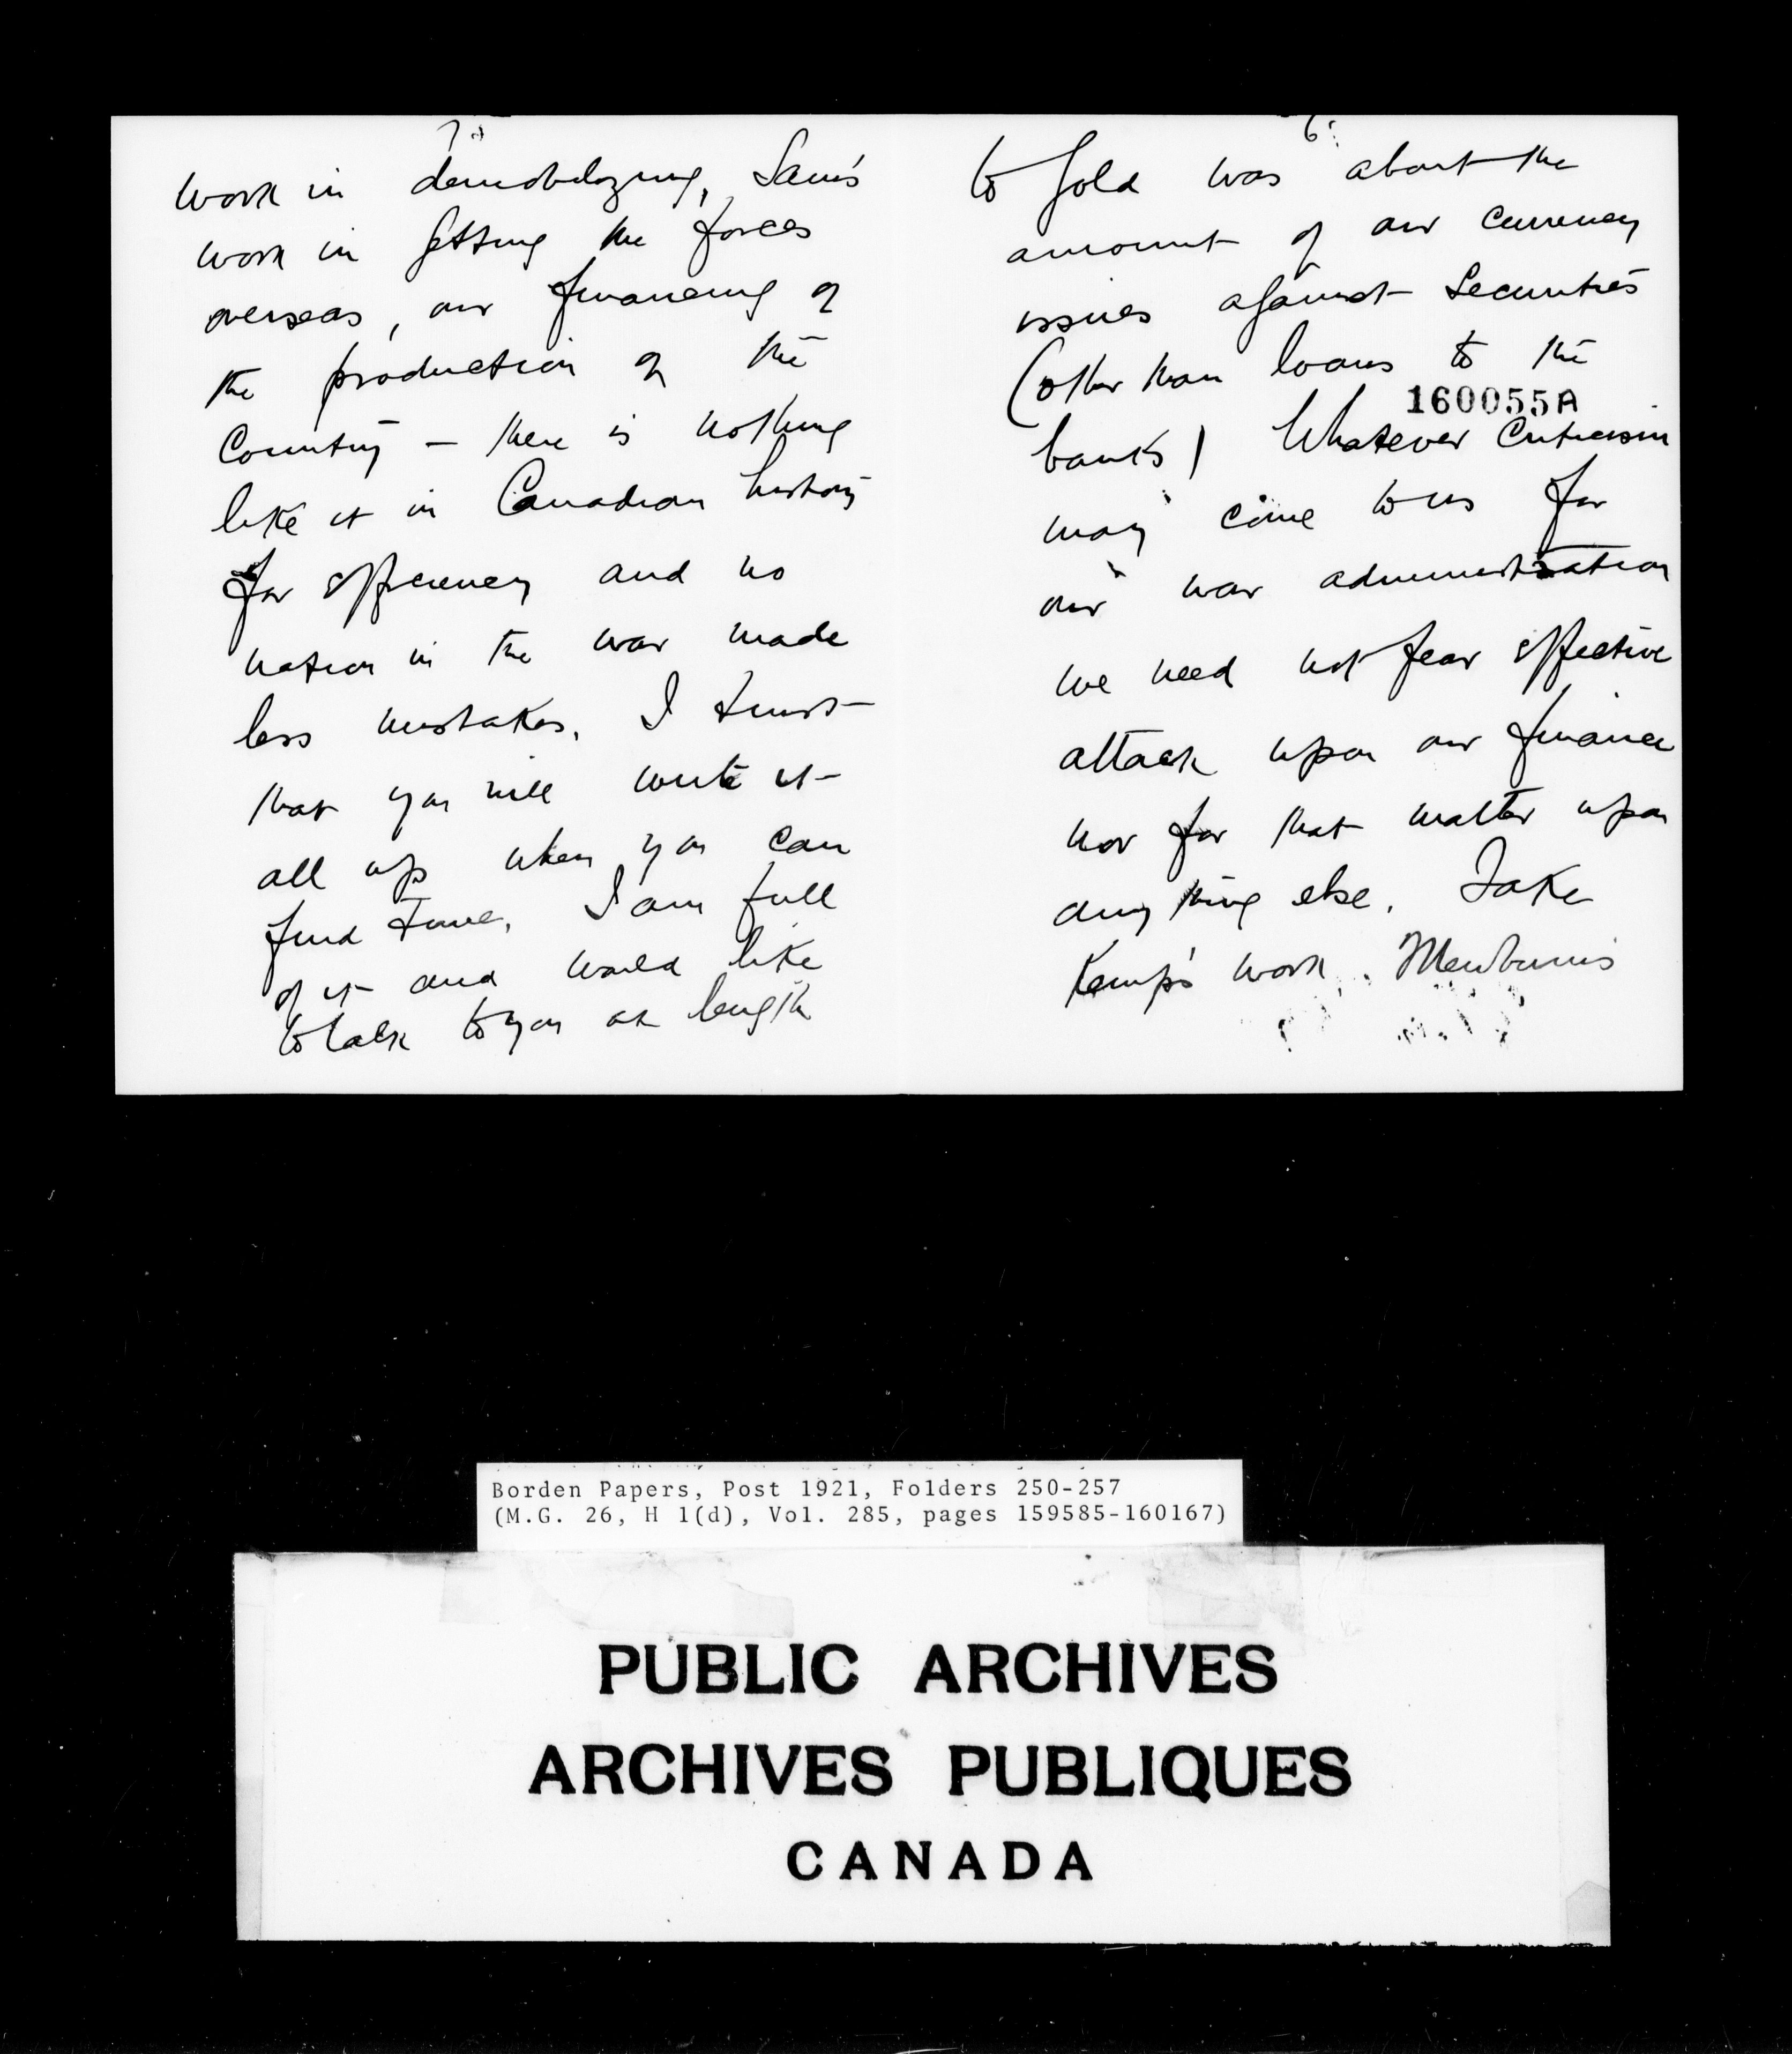 7.
work in demobilizing, Sam's
work in getting the forces
overseas, our financing of
the production of the
Country – there is nothing
like it in Canadian history
for efficiency and no
nation in the war made
less mistakes. I trust
that you will write it
all up when you can
find time. I am full
of it and would like
to talk to you at length
6.
to gold was about the
amount of our currency
issues against securities
(other than loans to the
160055A
banks) Whatever criticism
may come to us for
our war administration
we need not fear effective
attack upon our finance
nor for that matter upon
any thing else. Take
Kemp's work. Mewburn's
Borden Papers, Post 1921, Folders 250-257
(M.G. 26, H 1(d), Vol. 285, pages 159585-160167)
PUBLIC ARCHIVES
ARCHIVES PUBLIQUES
CANADA